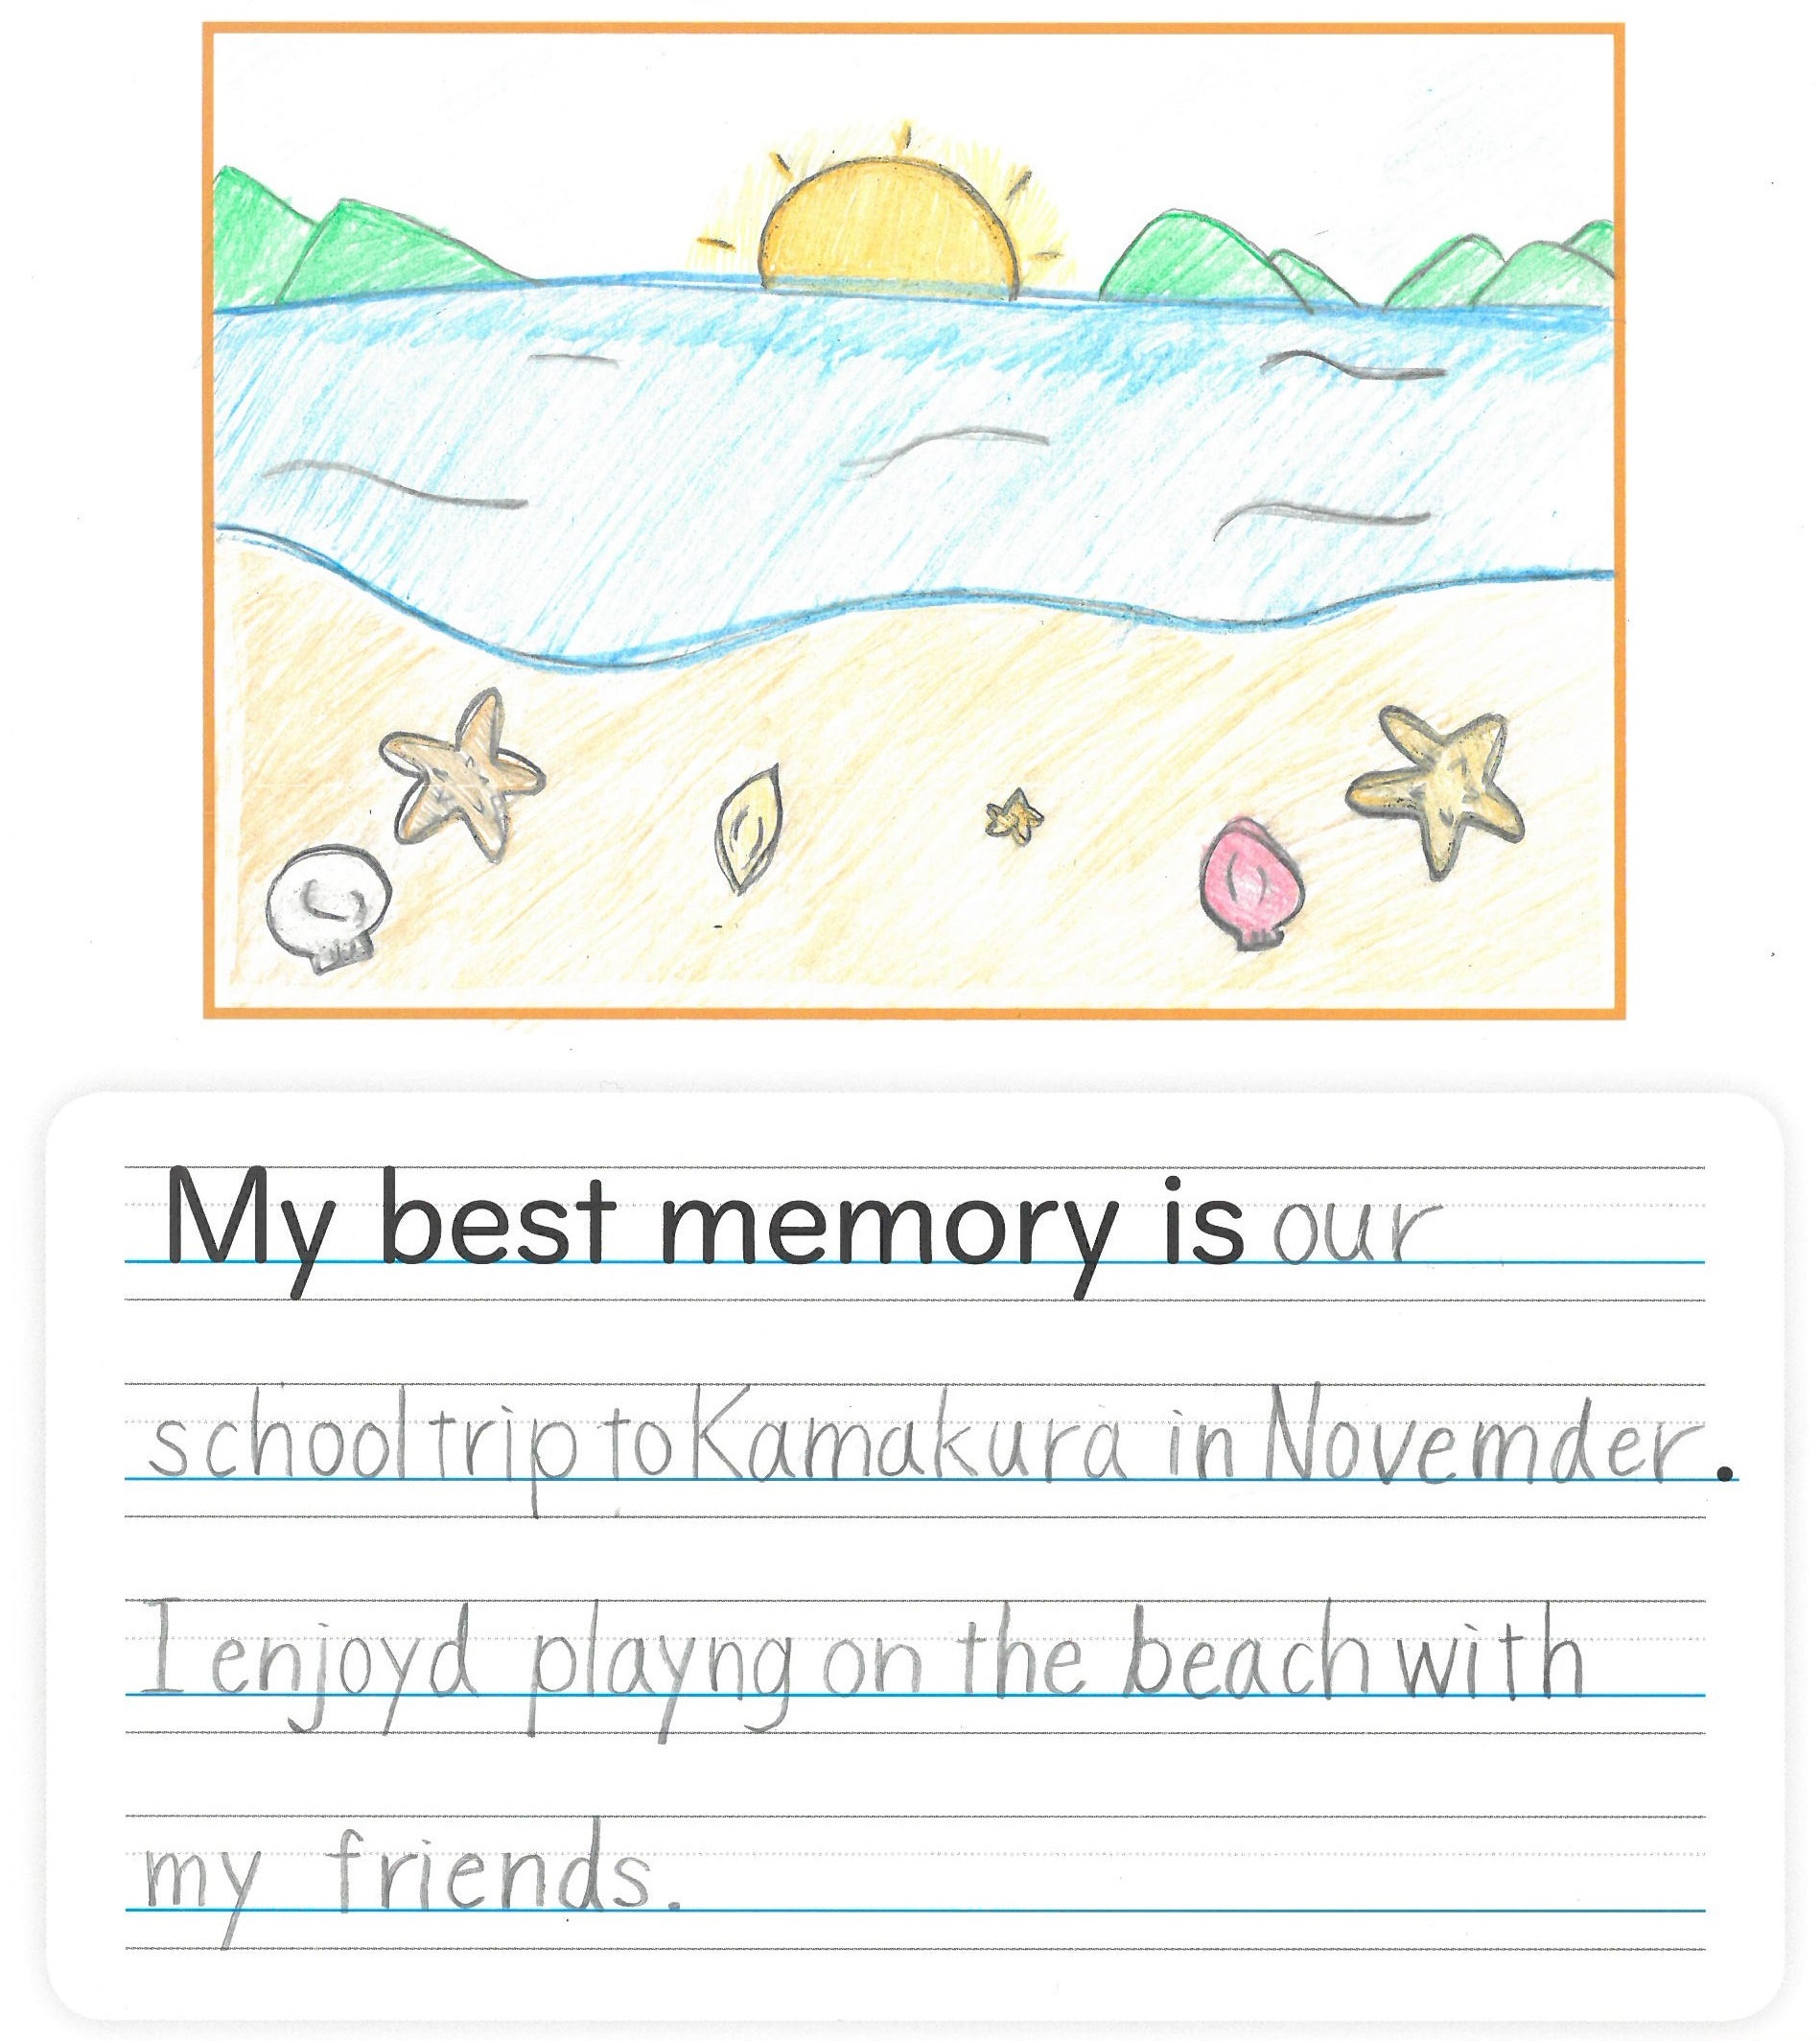 My best memory is our
school trip to Kamakura in Novemder.
I enjoyd playng on the beach with
my friends.